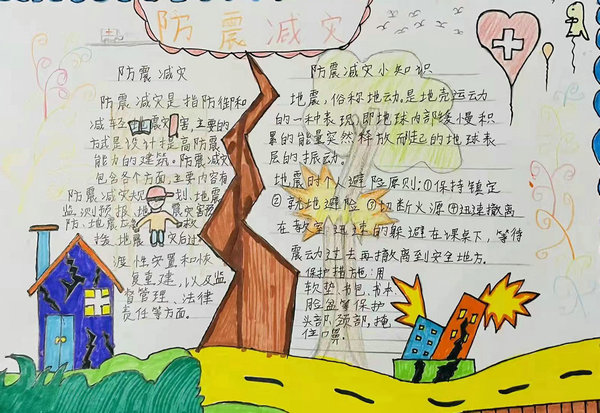 防震减灾
防震减灾
防震减灾是指防御和
减轻地震灾害,主要的
方式是设计提高防震
能力的建筑。防震减灾
包含各个方面,主要内容有
防震减灾规划、地震
监测预报、地震灾害预
防、地震应救
援、地震灾后过
渡性安置和恢
复重建,以及监
督管理、法律
责任等方面。
防震减灾小知识
地震,俗称地动。是地壳运动
的一种表现,即地球内部缓慢积
累的能量突然释放而起的地球表
层的振动。
地震时个人避险原则:①保持镇定
②就地避险①切断火源④迅速撤离
在教室迅速的躲避在课桌下,等待
震动过去再撤离到安全地方,
保护措施:用
软垫、书包、书本
脸盆等保护
头部、颈部,掩
住口鼻.